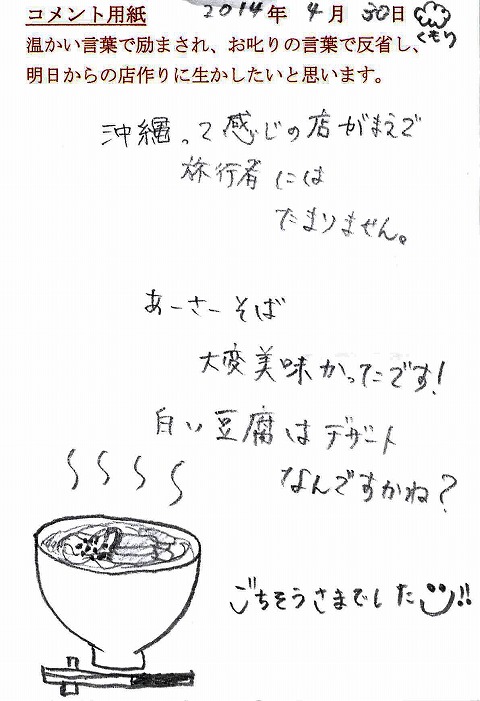 コメント用紙 2014年 4月 30日
くもり
温かい言葉で励まされ、お叱りの言葉で反省し、
明日からの店作りに生かしたいと思います。
沖縄って感じの店がまえで
旅行者には
たまりません。
あーさーそば
大変美味かったです!
白い豆腐はデザート
なんですかね?
ごちそうさまでした!!